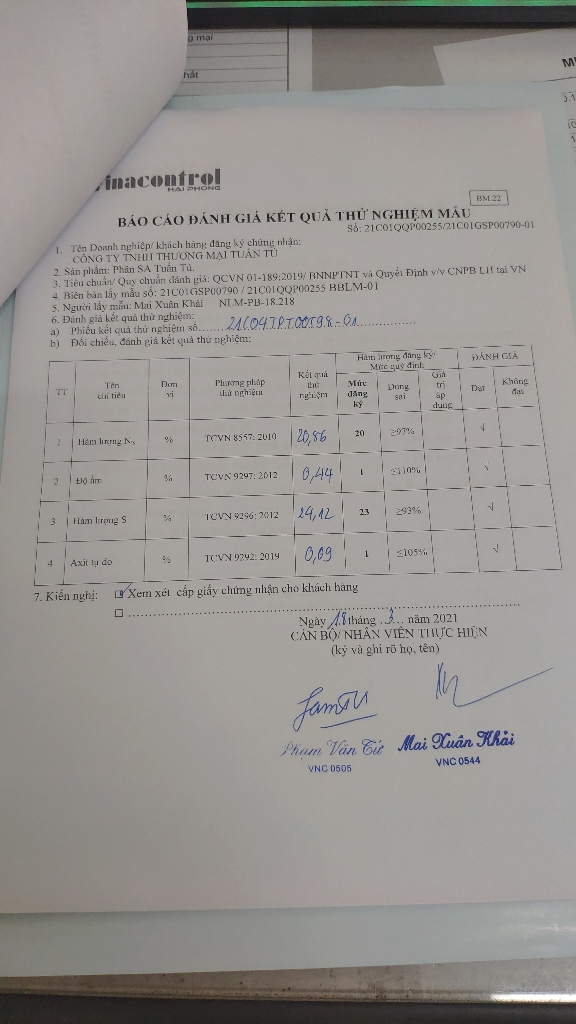 g mại
hất
inacontrol
HAI PHONG
BM.22
BÁO CÁO ĐÁNH GIÁ KẾT QUẢ THỬ NGHIỆM MẪU
Số: 21C01QQP00255/21C01GSP00790-01
1. Tên Doanh nghiệp/ khách hàng đăng ký chứng nhận:
CÔNG TY TNHH THƯƠNG MẠI TUẤN TÚ
2. Sản phẩm: Phân SA Tuấn Tú.
3. Tiêu chuẩn/ Quy chuẩn đánh giá: QCVN 01-189:2019/ BNNPTNT và Quyết Định v/v CNPB LH tại VN
4. Biên bản lấy mẫu số: 21C01GSP00790 / 21C01QQP00255 BBLM-01
5. Người lấy mẫu: Mai Xuân Khải NLM-PB-18.218
6. Đánh giá kết quả thử nghiệm:
a) Phiếu kết quả thử nghiệm số......21C04TPT00598-01...............
b) Đối chiếu, đánh giá kết quả thử nghiệm:
TT Tên chỉ tiêu Đơn vị Phương pháp thử nghiệm Kết quả thử nghiệm Hàm lượng đăng ký/ Mức quy định ĐÁNH GIÁ
Mức đăng ký Dung sai Giá trị áp dụng Đạt Không đạt
1 Hàm lượng Nts % TCVN 8557: 2010 20,86 20 ≥97% √
2 Độ ẩm % TCVN 9297: 2012 0,44 1 ≤110% √
3 Hàm lượng S % TCVN 9296: 2012 24,12 23 ≥93% √
4 Axit tự do % TCVN 9292: 2019 0,09 1 ≤105% √
7. Kiến nghị: ☑ Xem xét cấp giấy chứng nhận cho khách hàng
☐ ................................................................
Ngày 18 tháng 3 năm 2021
CÁN BỘ/ NHÂN VIÊN THỰC HIỆN
(ký và ghi rõ họ, tên)
Phạm Văn Tứ Mai Xuân Khải
VNC 0505 VNC 0544